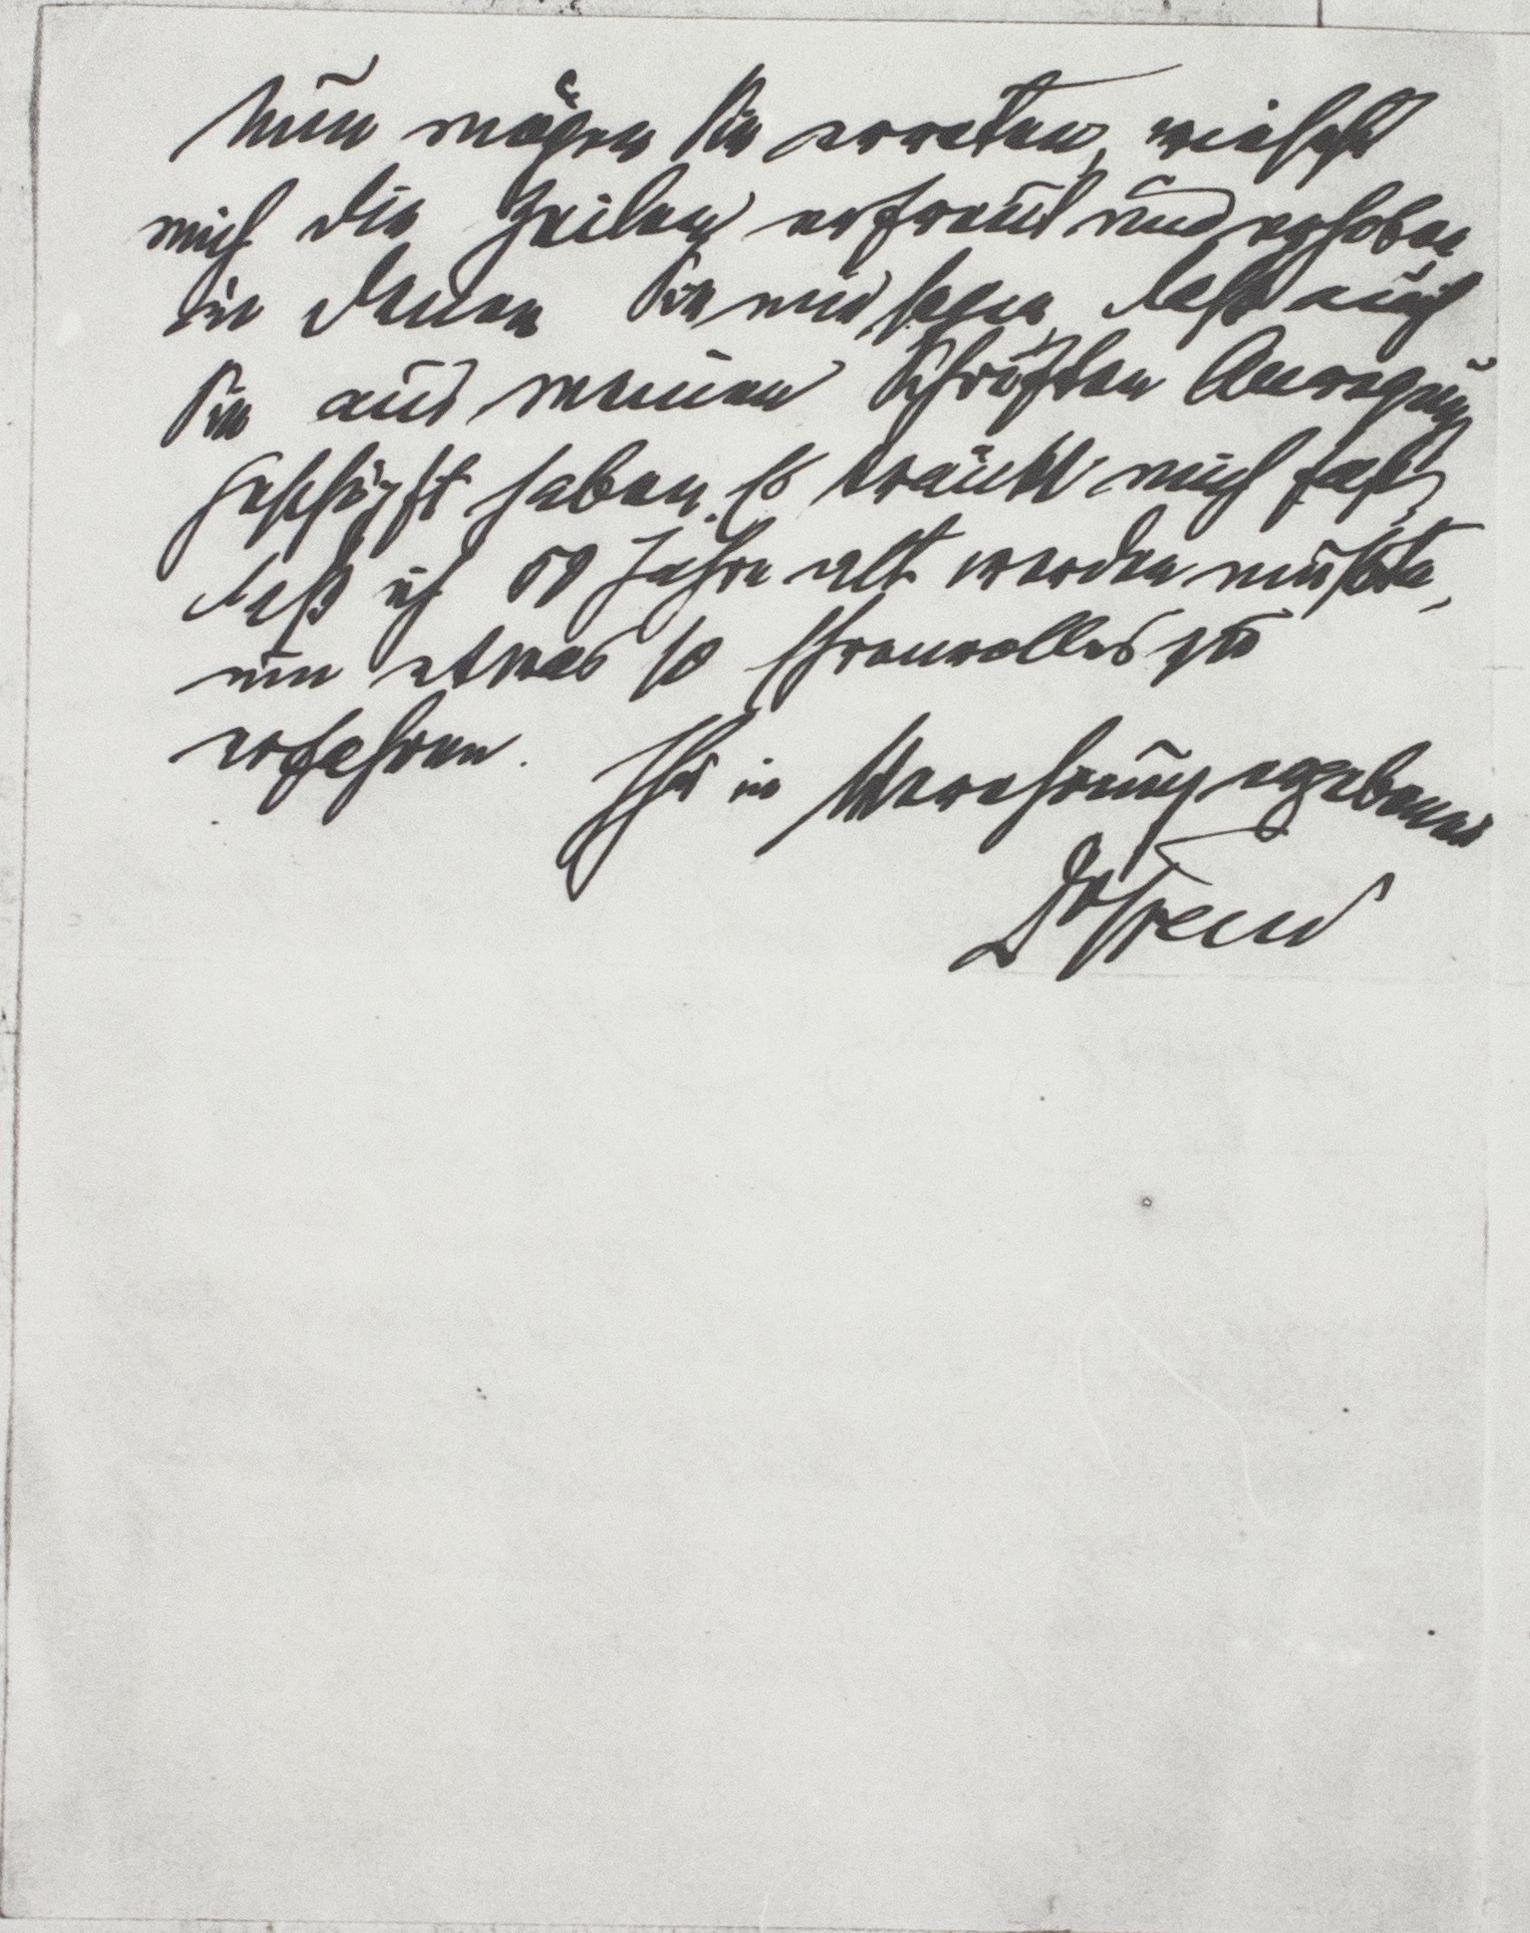 Nun mögen Sie erraten, wie sehr
mich die Zeilen erfreut und erhoben
in denen Sie mir sagen, daß auch
Sie aus meinen Schriften Anregung
geschöpft haben. Es kränkt mich fast,
daß ich 50 Jahre alt werden mußte,
um etwas so Ehrenvolles zu
erfahren.
Ihr in Verehrung ergebener
Dr Freud